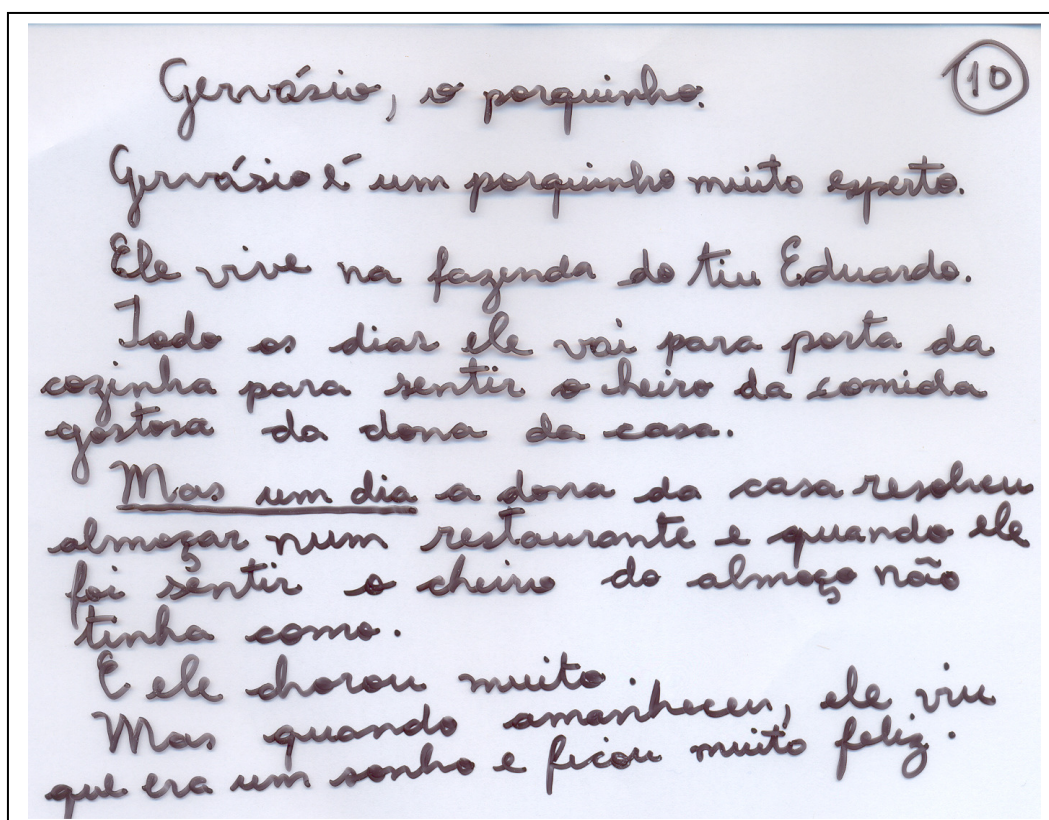 Gervásio, o porquinho.
10
Gervásio é um porquinho muito esperto.
Ele vive na fazenda do tiu Eduardo.
Todo os dias ele vai para porta da
cozinha para sentir o heiro da comida
gostosa da dona da casa.
Mas um dia a dona da casa resolveu
almoçar num restaurante e quando ele
foi sentir o cheiro do almoço não
tinha como.
E ele chorou muito.
Mas quando amanheceu, ele viu
que era um sonho e ficou muito feliz.